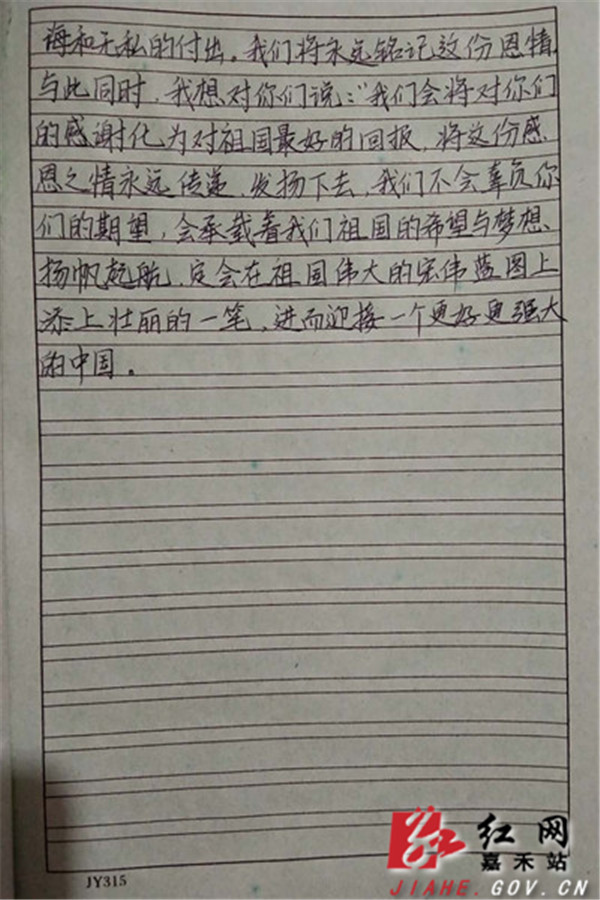 诲和无私的付出。我们将永远铭记这份恩情,
与此同时，我想对你们说：“我们会将对你们
的感谢化为对祖国最好的回报，将这份感
恩之情永远传递，发扬下去，我们不会辜负你
们的期望，会承载着我们祖国的希望与梦想、
扬帆起航，定会在祖国伟大的宏伟蓝图上
添上壮丽的一笔，进而迎接一个更好更强大
的中国。
JY315
红网
嘉禾站
JIAHE.GOV.CN